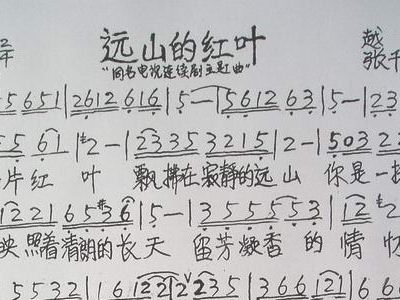 2/4 远山的红叶 越
"同名电视连续剧主题曲" 张千
5 5 6 5 1 | 2 6 1 2 6 1 6 | 5 — | 5 6 1 2 6 3 | 5 — | 2 3
5 6 1 | 2 — | 2 3 3 5 3 2 1 5 | 2 — | 5 0 3 2
片 红 叶 飘拂在寂静的远 山 你是一
1 2 2 1 6 5 #3 6 | 5 — | 3 5 5 5 5 3 | 1 2 2
映照着清朗的长天 留芳凝香 的 情 怀
5 5 3 2 | 1 6 1 2 2 | 2 2 3 5 | 3 6 6 1 2 1 | 6